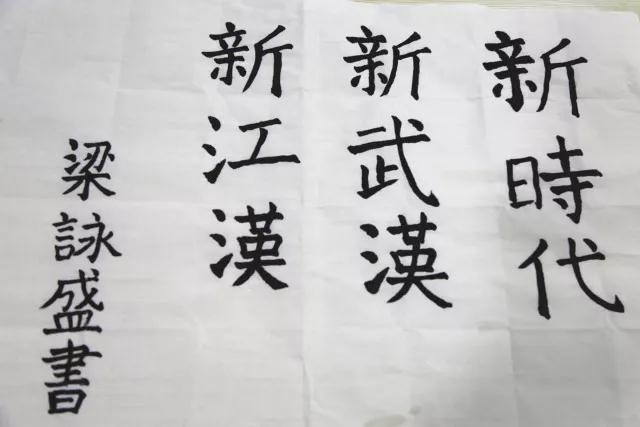 新時代
新武漢
新江漢
梁詠盛書